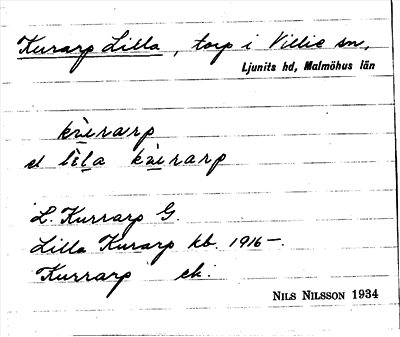 Kurarp Lilla, torp i Villie sn,
Ljunits hd, Malmöhus län
kùrarp
el lìla kùrarp
L. Kurrarp G.
Lilla Kurarp kb. 1916–.
Kurrarp ek.
NILS NILSSON 1934